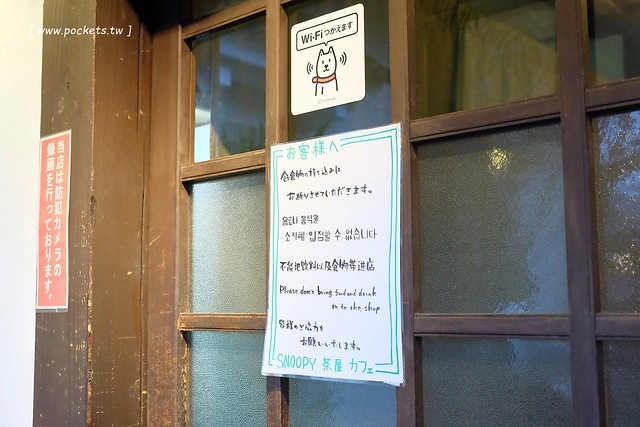 [ www.pockets.tw ]
Wi-Fiつかえます
当店は防犯カメラの
録画を行っております。
お客様へ
飲食物の持ち込みは
お断りさせていただきます。
음료나 음식을
소지해 입점할 수 없습니다
不能把饮料以及食物带进店
Please don't bring food and drink
in to the shop
皆様のご協力を
お願いいたします。
SNOOPY 茶屋 カフェ